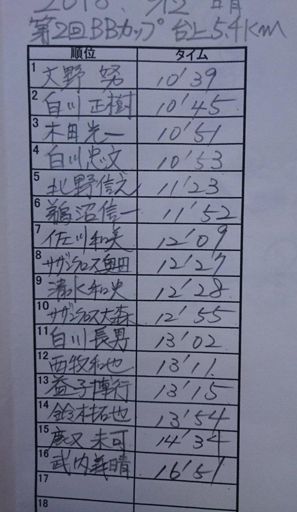 2018.
第2回BBカップ 台上5.4Km
順位 タイム
1 大野 努 10'39
2 白川 正樹 10'45
3 本田光一 10'51
4 白川忠文 10'53
5 北野信之 11'23
6 鵜沼信一 11'52
7 佐川和美 12'09
8 サザンクロス奥田 12'27
9 清水和史 12'28
10 サザンクロス大森 12'55
11 白川長男 13'02
12 西牧和也 13'11
13 益子博行 13'15
14 鈴木拓也 13'54
15 14'34
16 武内義晴 16'51
17
18